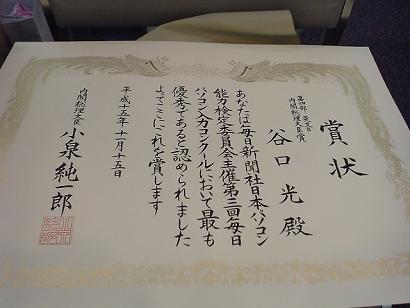 賞状
第四部 英文の部
内閣総理大臣賞
谷口光殿
あなたは毎日新聞社日本パソコン
能力検定委員会主催第三回毎日
パソコン入力コンクールにおいて最も
優秀であると認められました
よってここにこれを賞します
平成十五年十二月十五日
内閣総理大臣
小泉純一郎